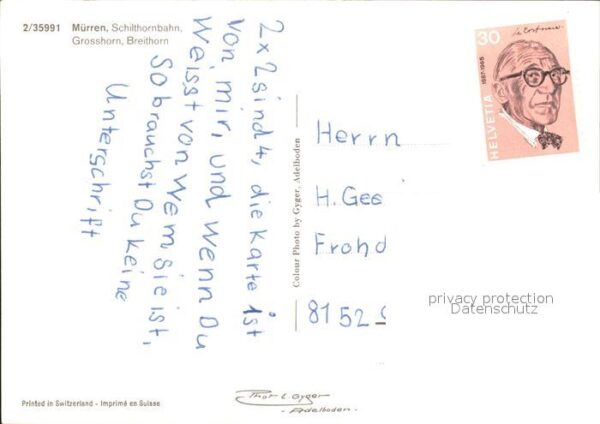 2/35991 Mürren, Schilthornbahn,
Grosshorn, Breithorn
2x2 sind 4, die Karte ist
von mir, und wenn Du
Weisst von Wem sie ist,
So brauchst Du keine
Unterschrift
Colour Photo by Gyger, Adelboden
30
Le Corbusier
1887-1965
HELVETIA
Herrn
H. Gee
Frohd
8152
privacy protection
Datenschutz
Printed in Switzerland - Imprimé en Suisse
Thor E. Gyger
- Adelboden -